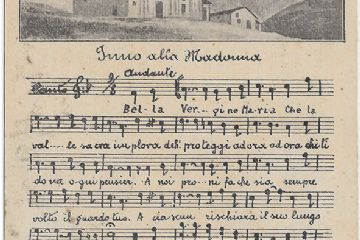 Inno alla Madonna
Andante
Canto
Bel-la Ver--gine Maria Che la
val---le sacra implora deh! proteggi adora ad ora chi ti
dona ogni pensier. A noi pro--ni fa che sia sempre
volto il guardo tuo. A ciascun rischiara il suo lungo